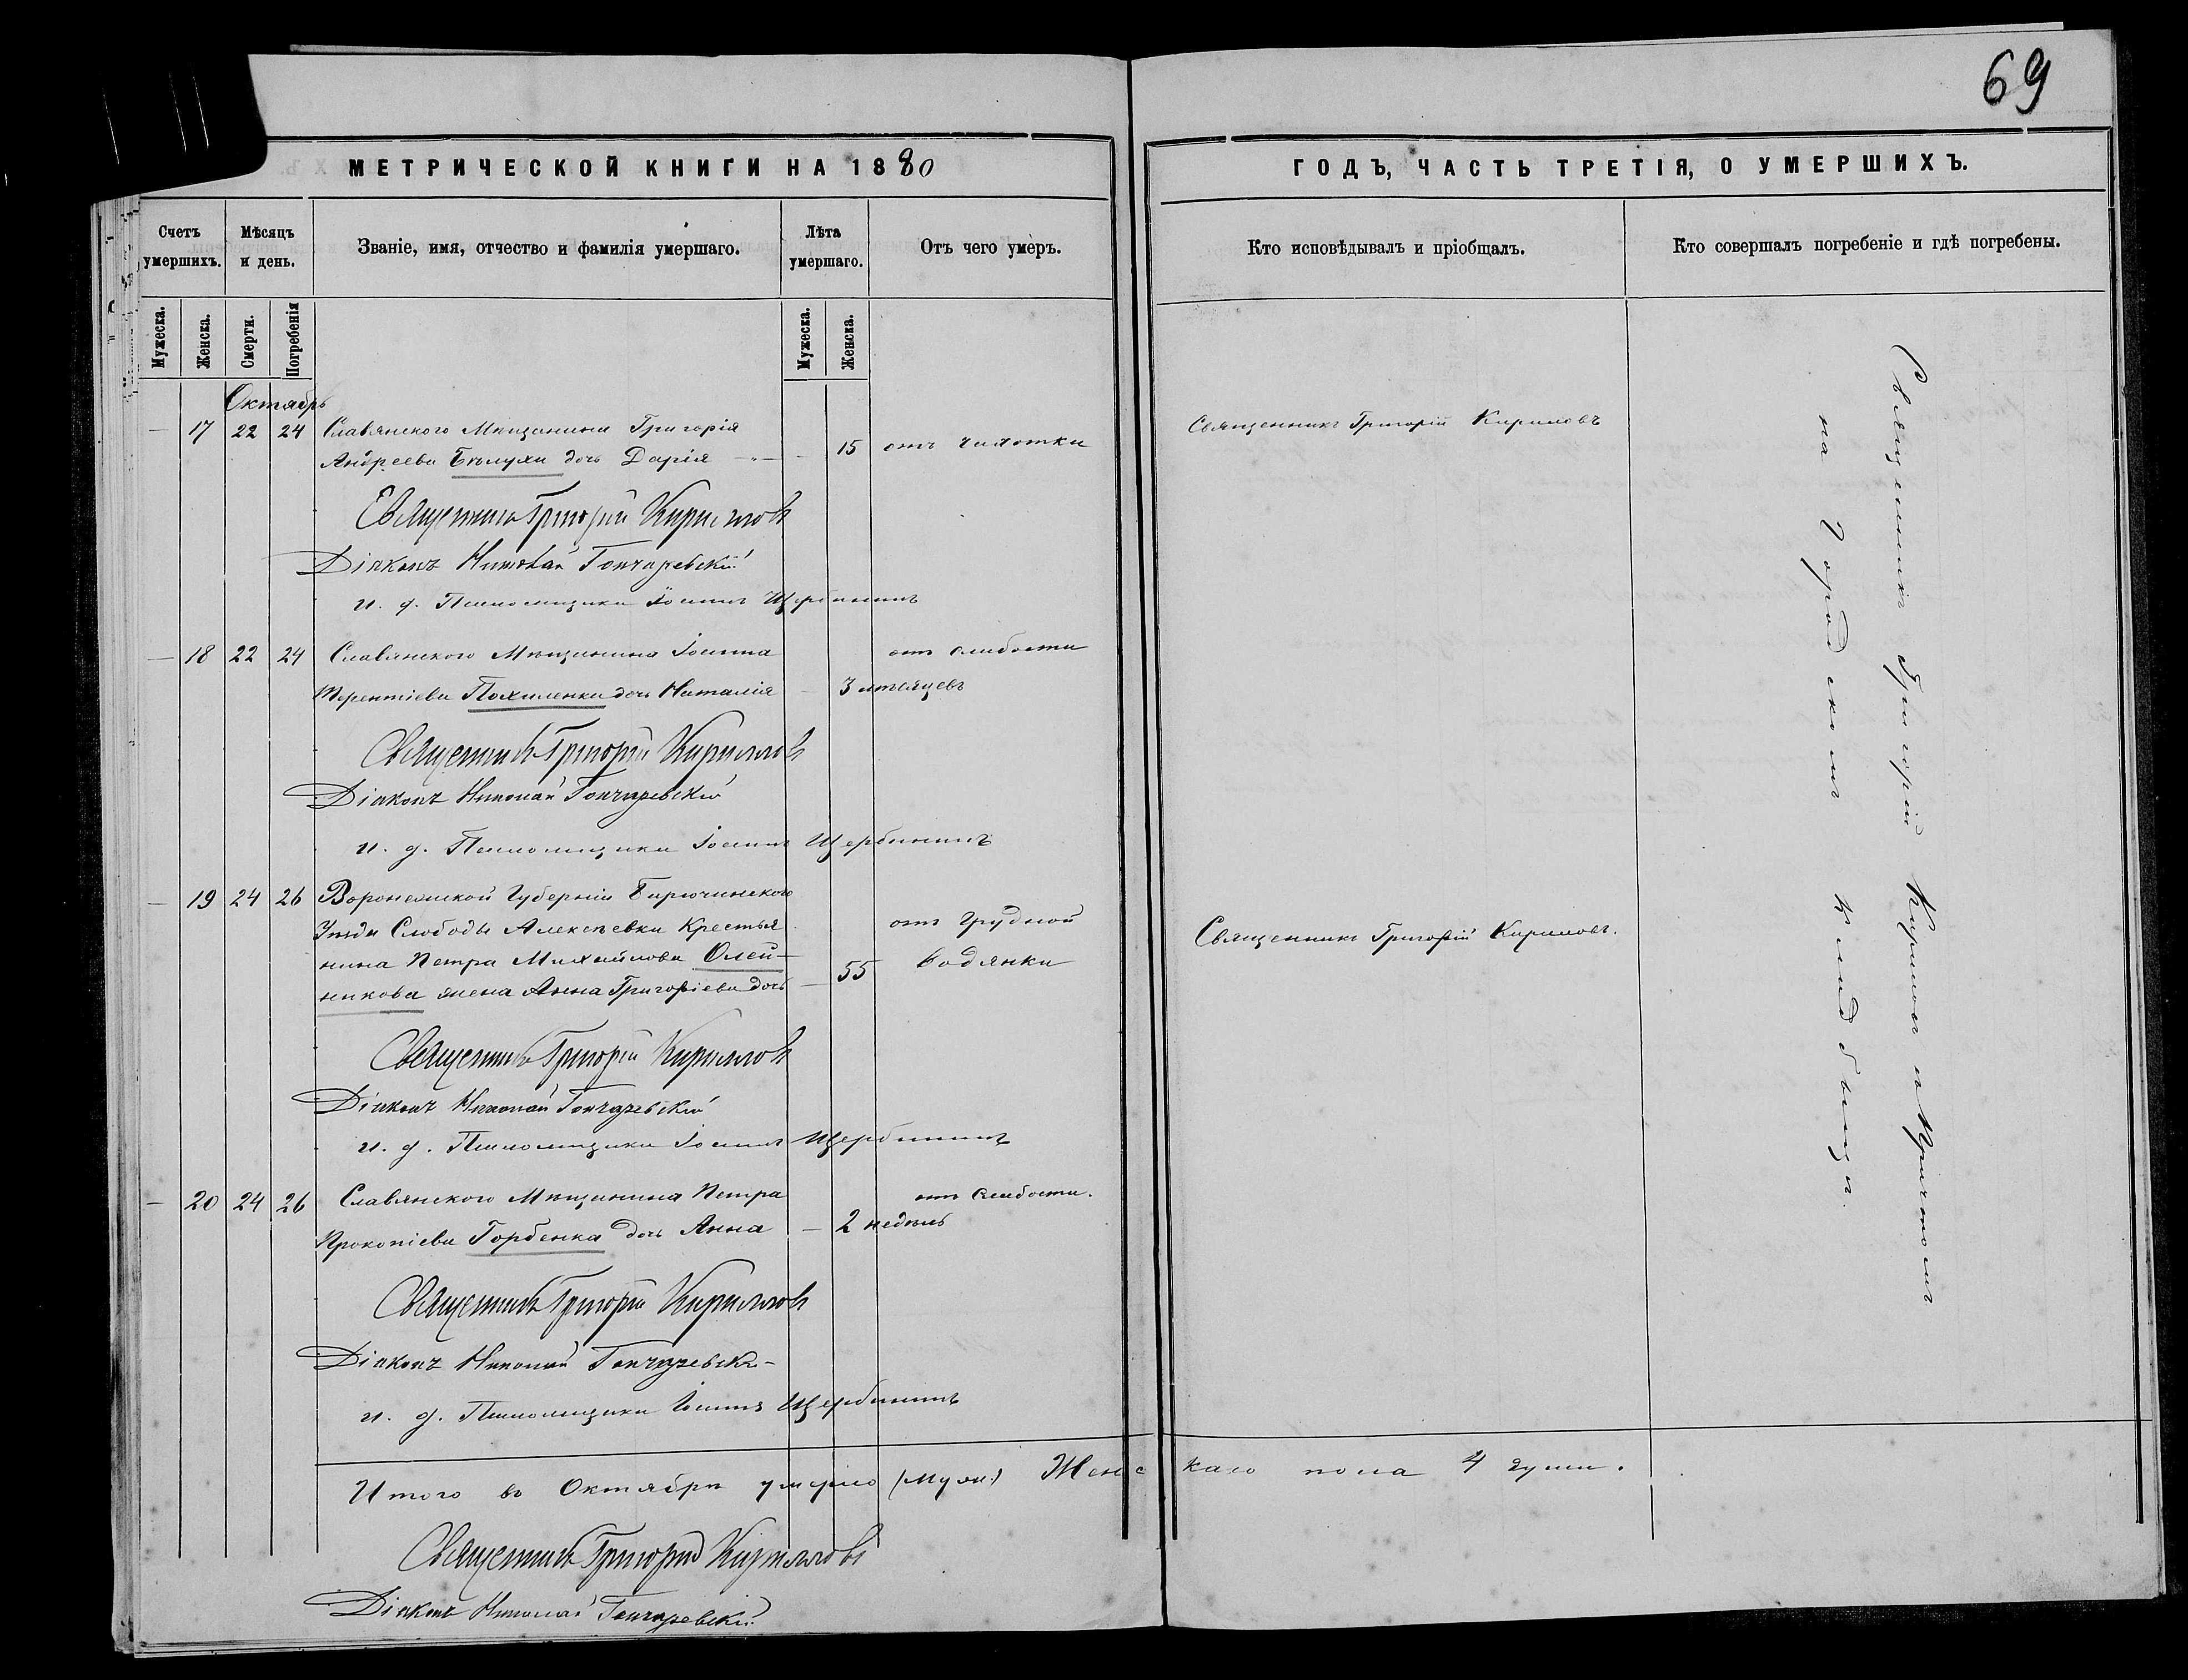 69
МЕТРИЧЕСКОЙ КНИГИ НА 1880
ГОДЪ, ЧАСТЬ ТРЕТІЯ, О УМЕРШИХЪ.
Счетъ умершихъ.
Мѣсяцъ и день.
Званіе, имя, отчество и фамилія умершаго.
Лѣта умершаго.
Отъ чего умеръ.
Кто исповѣдывалъ и пріобщалъ.
Кто совершалъ погребеніе и гдѣ погребены.
Мужеска.
Женска.
Смерти.
Погребенія
Мужеска.
Женска.
Октябрь
— 17 22 24 Славянского Мѣщанина Григорія
Андреева Бѣлухи дочь Дарія — 15 отъ чахотки
Священникъ Григорій Кириловъ
Священникъ Григорій Кирилловъ
Діаконъ Николай Гончаревскій
и. д. Псаломщика Іоаннъ Щербининъ
— 18 22 24 Славянского Мѣщанина Іоанна отъ слабости
Терентіева Похиленка дочь Наталія — 3 мѣсяцевъ
Священникъ Григорій Кирилловъ
Діаконъ Николай Гончаревскій
и. д. Псаломщика Іоаннъ Щербининъ
— 19 24 26 Воронежской Губерніи Бирюченского
Уѣзда Слободы Алексѣевки Крестья
нина Петра Михайлова Олей-
никова жена Анна Григоріева дочь — 55
отъ грудной
водянки
Священникъ Григорій Кириловъ.
Священникъ Григорій Кирилловъ
Діаконъ Николай Гончаревскій
и. д. Псаломщика Іоаннъ Щербининъ
— 20 24 26 Славянского Мѣщанина Петра отъ слабости.
Прокопіева Горбенка дочь Анна — 2 недѣль
Священникъ Григорій Кирилловъ
Діаконъ Николай Гончаревскі-
и. д. Псаломщика Іоаннъ Щербининъ
Итого въ Октябрѣ умерло (муж.) Женскаго пола 4 души.
Священникъ Григорій Кирилловъ
Діаконъ Николай Гончаревскій
Священникъ Григорій Кириловъ съ Причтомъ
на Городскомъ кладбищѣ